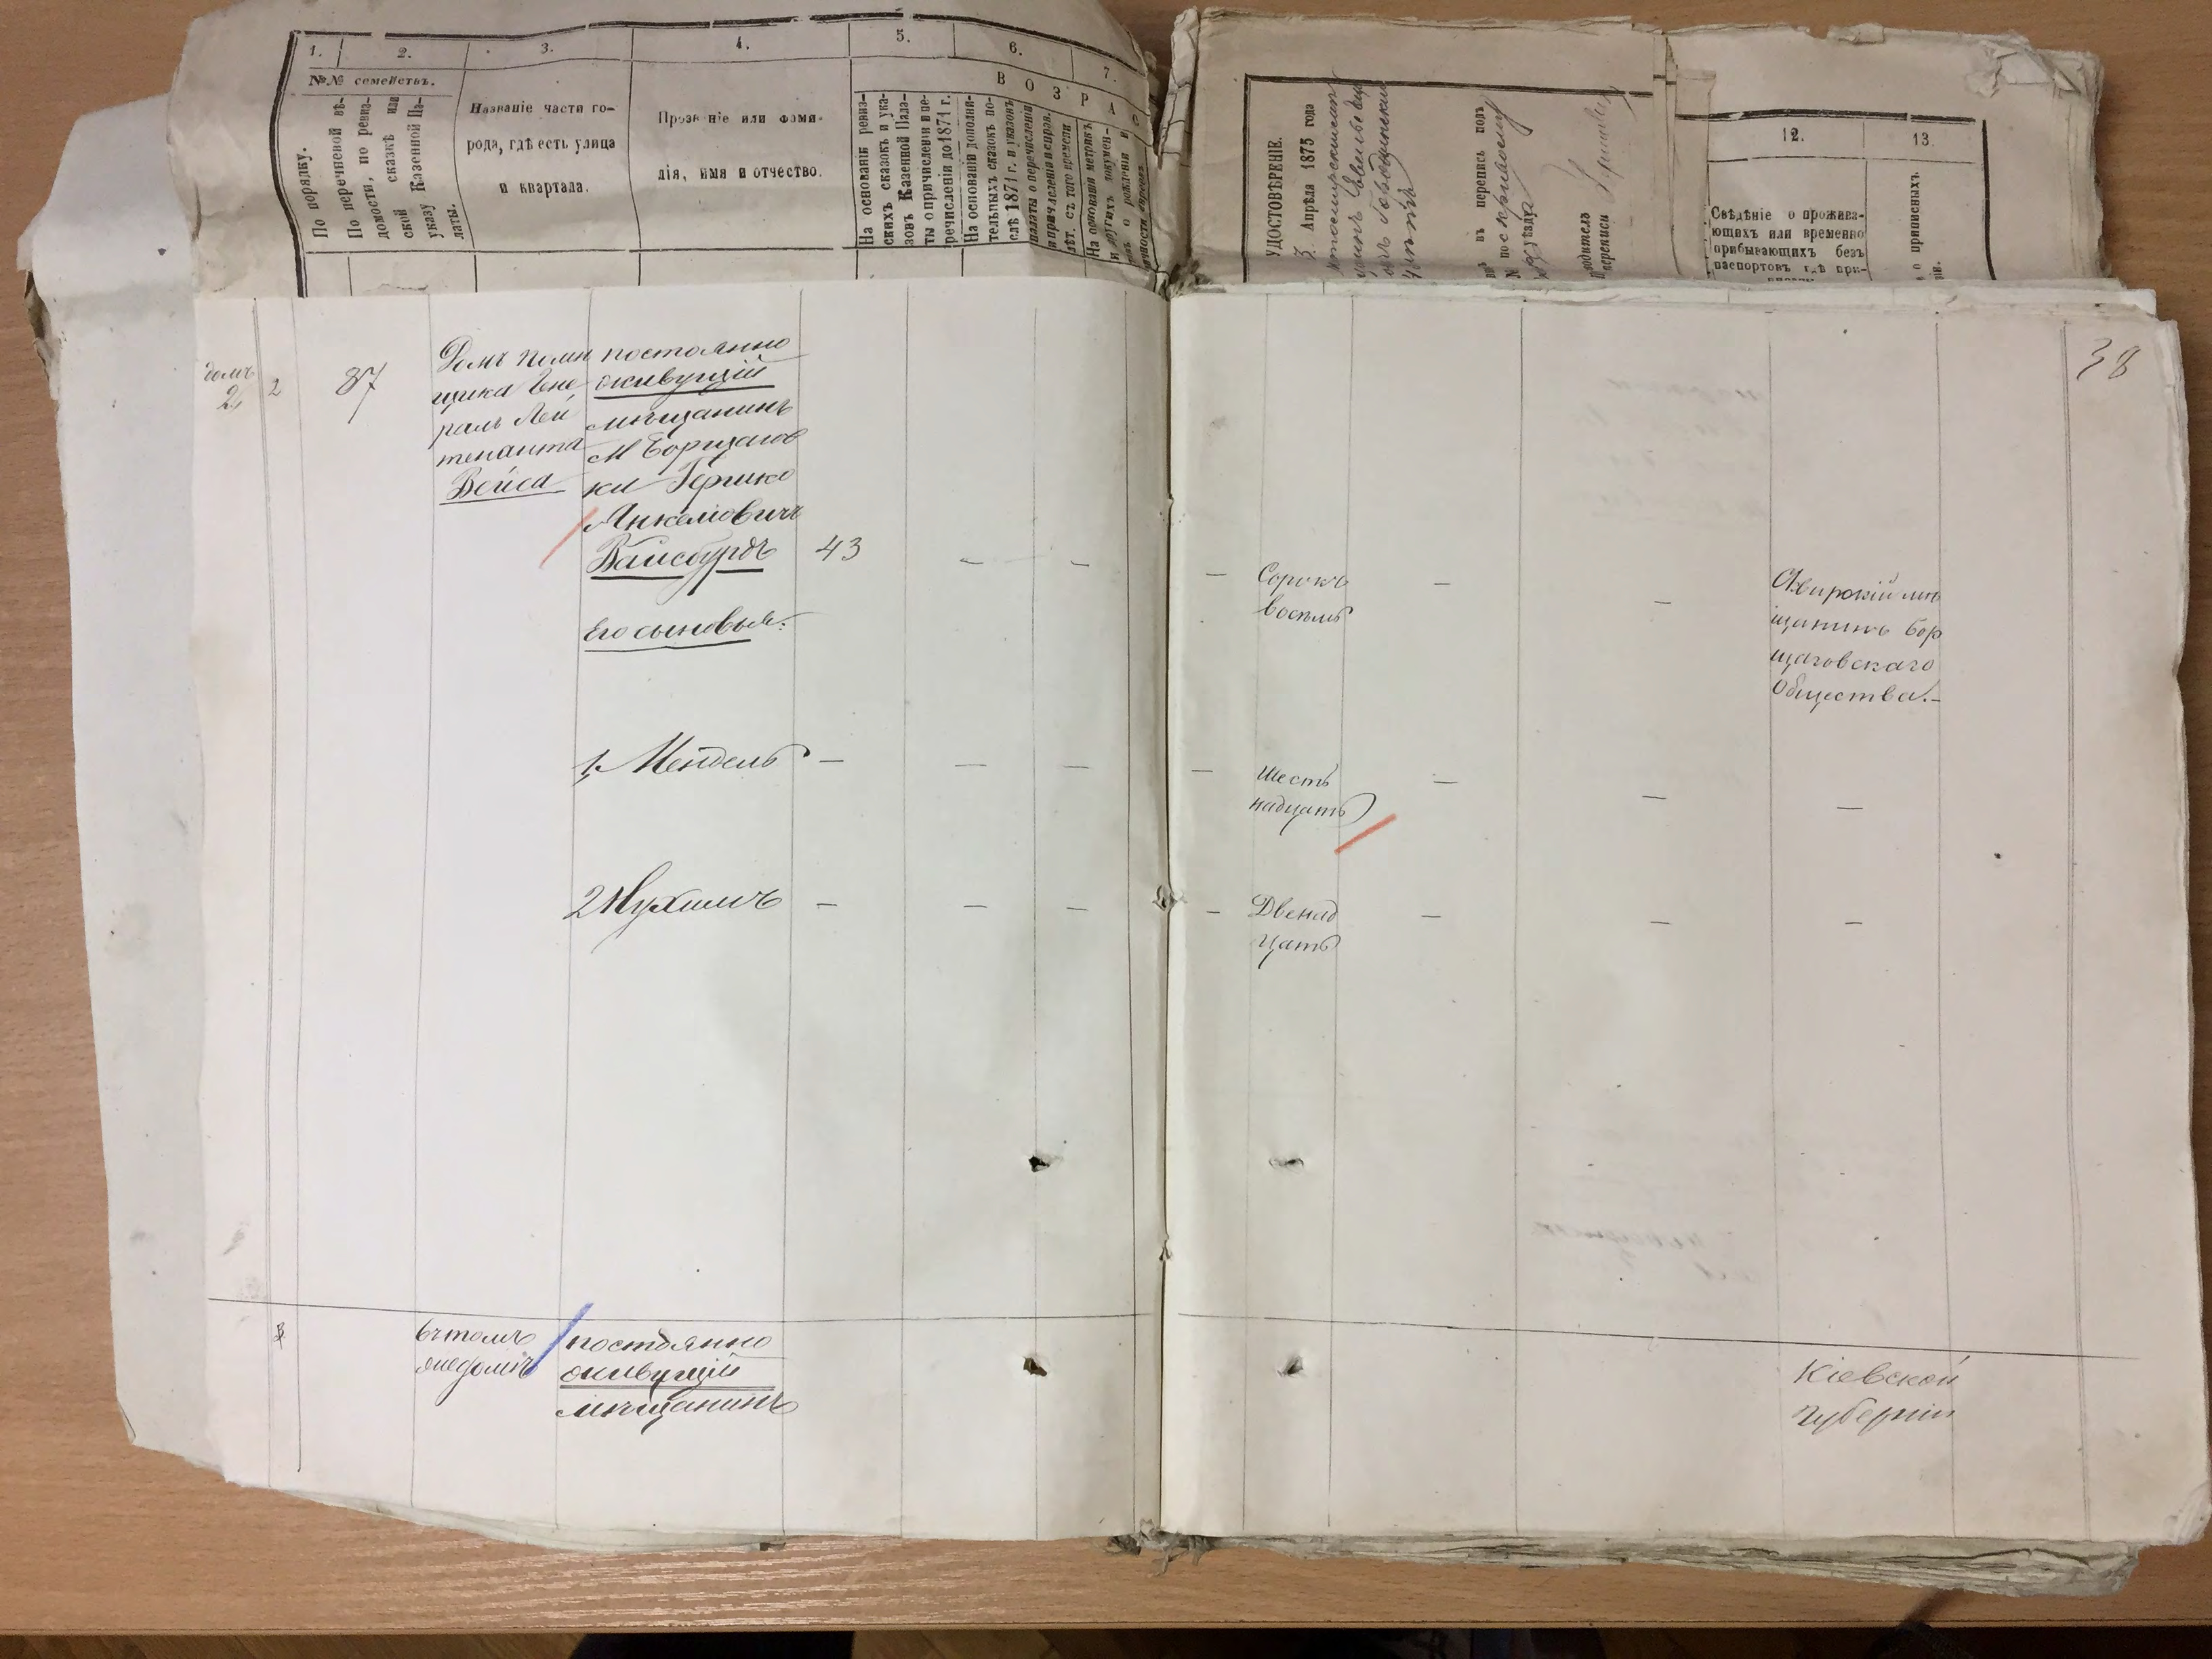 1.
2.
3.
4.
5.
6.
7.
№№ семействъ.
В О З Р А С
По порядку.
По перечневой вѣ-
домости, по ревиз-
ской сказкѣ или
указу Казенной Па-
латы.
Названіе части го-
рода, гдѣ есть улица
и квартала.
Прозв ніе или фами-
лія, имя и отчество.
На основаніи ревиз-
скихъ сказокъ и ука-
зовъ Казенной Пала-
ты о причисленіи и пе-
речисленіи до 1871 г.
На основаніи дополни-
тельныхъ сказокъ по-
слѣ 1871 г. и указовъ
палаты о перечисленіи
и причисленіи и справ.
лѣт. съ того времени
На основаніи метрикъ
и другихъ докумен-
о рожденіи и
УДОСТОВѢРЕНІЕ.
3. Апрѣля 1875 года
въ перепись подъ
№
уѣзда
переписи
12.
13.
Свѣдѣніе о прожива-
ющихъ или временно
прибывающихъ безъ
паспортовъ гдѣ при-
о приписныхъ.
38
домъ
2
2
87
Домъ поми
щика Гене
ралъ Лей
тенанта
Вейса
постоянно
живущій
мѣщанинъ
м Борщагов
ки Гершко
Анкелювичъ
Вайсбурдъ
43
—
—
—
Сорокъ
восемь
—
—
Сквирскій мѣ
щанинъ Бор
щаговскаго
Общества.-
Его сыновья:
1, Мендель
—
—
—
—
Шесть
надцать
—
—
—
2 Нухимъ
—
—
—
—
Двенад
цать
—
—
—
3
Въ томъ
же домѣ
постоянно
живущій
мѣщанинъ
Кіевской
губерніи